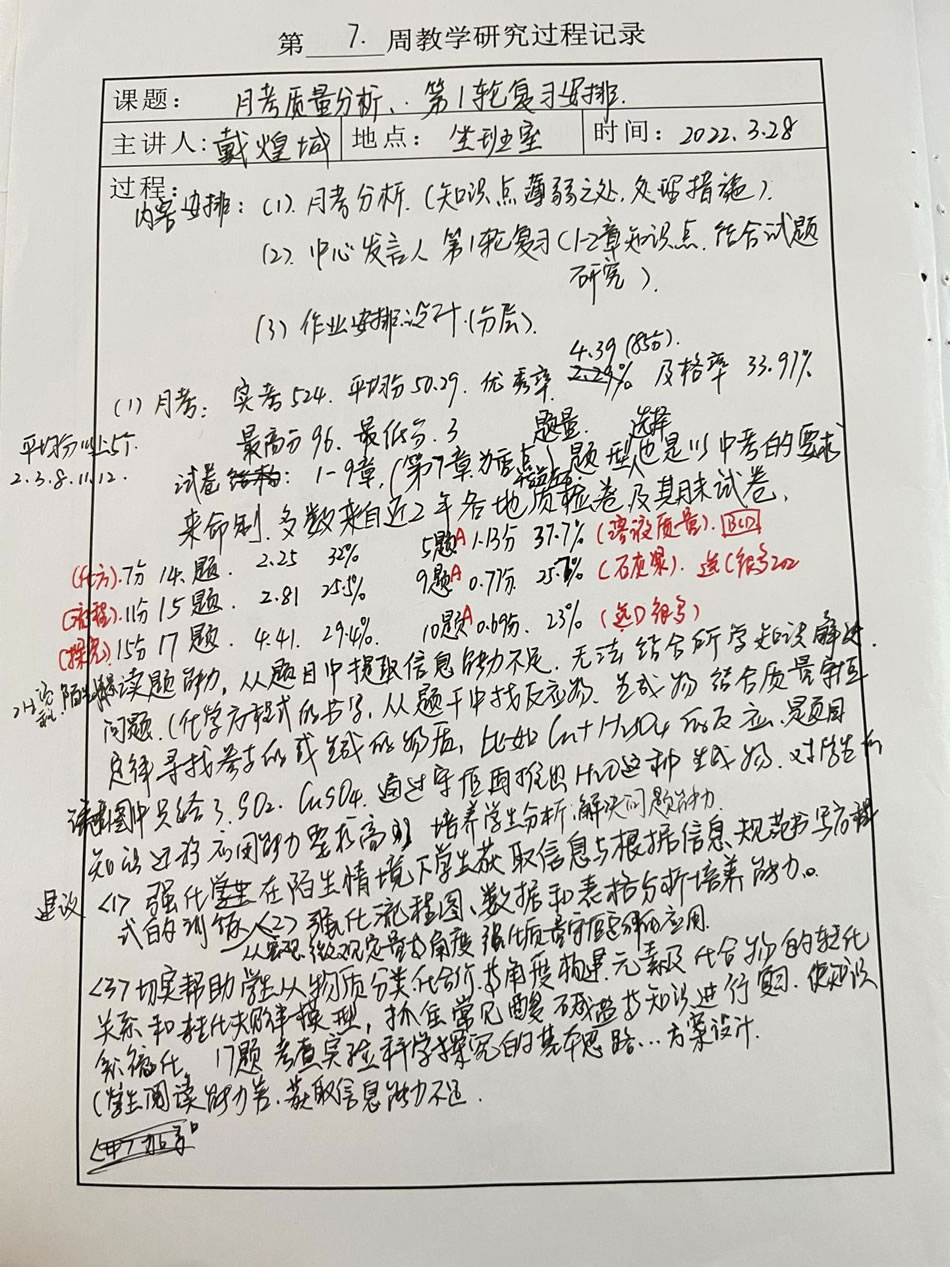 第 7. 周教学研究过程记录
课题： 月考质量分析、第1轮复习安排.
主讲人: 戴煌城 地点： 坐班室 时间： 2022.3.28
过程：
内容安排：(1). 月考分析.(知识点薄弱之处,处理措施).
(2). 中心发言人 第1轮复习(1-2章知识点.结合试题
研究).
(3) 作业安排.设计.(分层).
4.39 (85分).
(1) 月考： 实考524. 平均分50.29. 优秀率 2.29% 及格率 33.97%
平均分以上5个.
2.3.8.11.12.
最高分96. 最低分.3 题量. 选择
试卷结构: 1-9章,(第7章为重点) 题型也是以中考的要求
来命制.多数来自近2年各地质检卷及其期末试卷,
(化方).7分 14.题. 2.25 32% 5题A 1.13分 37.7% (溶液质量). BCD
(流程).11分 15题. 2.81 25.5% 9题A 0.77分 25.7% (石灰浆). 选C很多
(探究).15分 17题. 4.41. 29.4% 10题A 0.69分. 23% (选D很多)
读题能力, 从题目中提取信息能力不足. 无法结合所学知识解决.
问题.(化学方程式的书写, 从题干中找反应物. 生成物 结合质量守恒
定律寻找参与的或生成的物质, 比如Cu+H2SO4的反应. 题目
流程图中只给了.SO2. CuSO4. 通过守恒再推出H2O这种生成物. 对学生的
知识迁移应用能力要求高) 培养学生分析.解决问题能力.
建议 <1> 强化学生在陌生情境下学生获取信息与根据信息规范书写方程
式的训练 <2> 强化流程图、数据和表格分析培养能力。
从宏观.微观定量的角度 强化质量守恒定律的应用.
<3> 切实帮助学生从物质分类.化合价.等角度构建元素及化合物的转化
关系和转化规律模型, 抓住常见酸碱盐等知识进行复习. 使知识
系统化. 17题 考查实验科学探究的基本思路…方案设计.
(学生阅读能力差.获取信息能力不足.